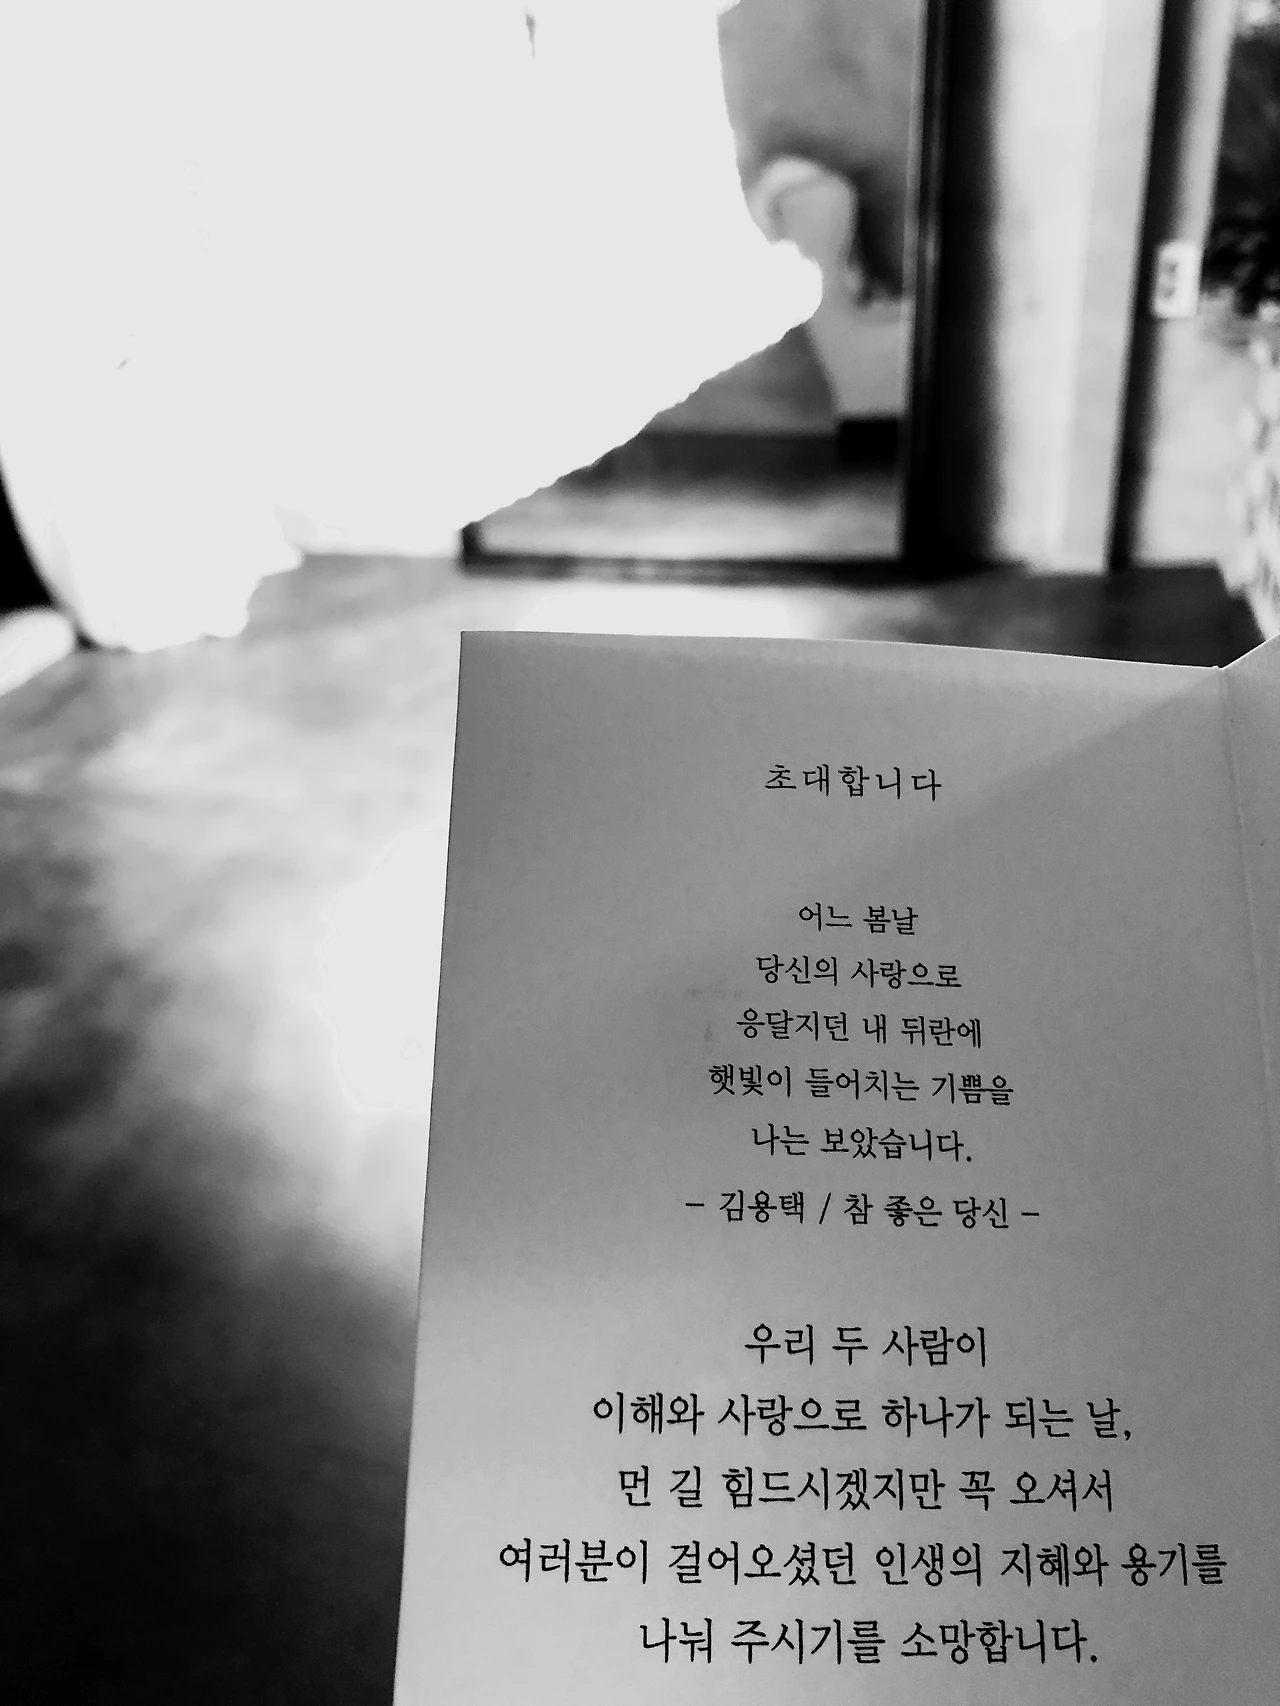 초대합니다
어느 봄날
당신의 사랑으로
응달지던 내 뒤란에
햇빛이 들어치는 기쁨을
나는 보았습니다.
- 김용택 / 참 좋은 당신 -
우리 두 사람이
이해와 사랑으로 하나가 되는 날,
먼 길 힘드시겠지만 꼭 오셔서
여러분이 걸어오셨던 인생의 지혜와 용기를
나눠 주시기를 소망합니다.